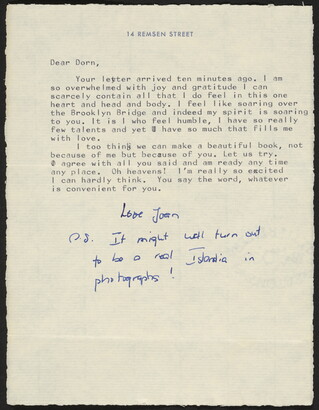 14 REMSEN STREET
Dear Dorn,
Your letter arrived ten minutes ago. I am
so overwhelmed with joy and gratitude I can
scarcely contain all that I do feel in this one
heart and head and body. I feel like soaring over
the Brooklyn Bridge and indeed my spirit is soaring
to you. It is I who feel humble, I have so really
few talents and yet I have so much that fills me
with love.
I too think we can make a beautiful book, not
because of me but because of you. Let us try.
I agree with all you said and am ready any time
any place. Oh heavens! I'm really so excited
I can hardly think. You say the word, whatever
is convenient for you.
Love Joan
P.S. It might well turn out
to be a real Islandia in
photographs!